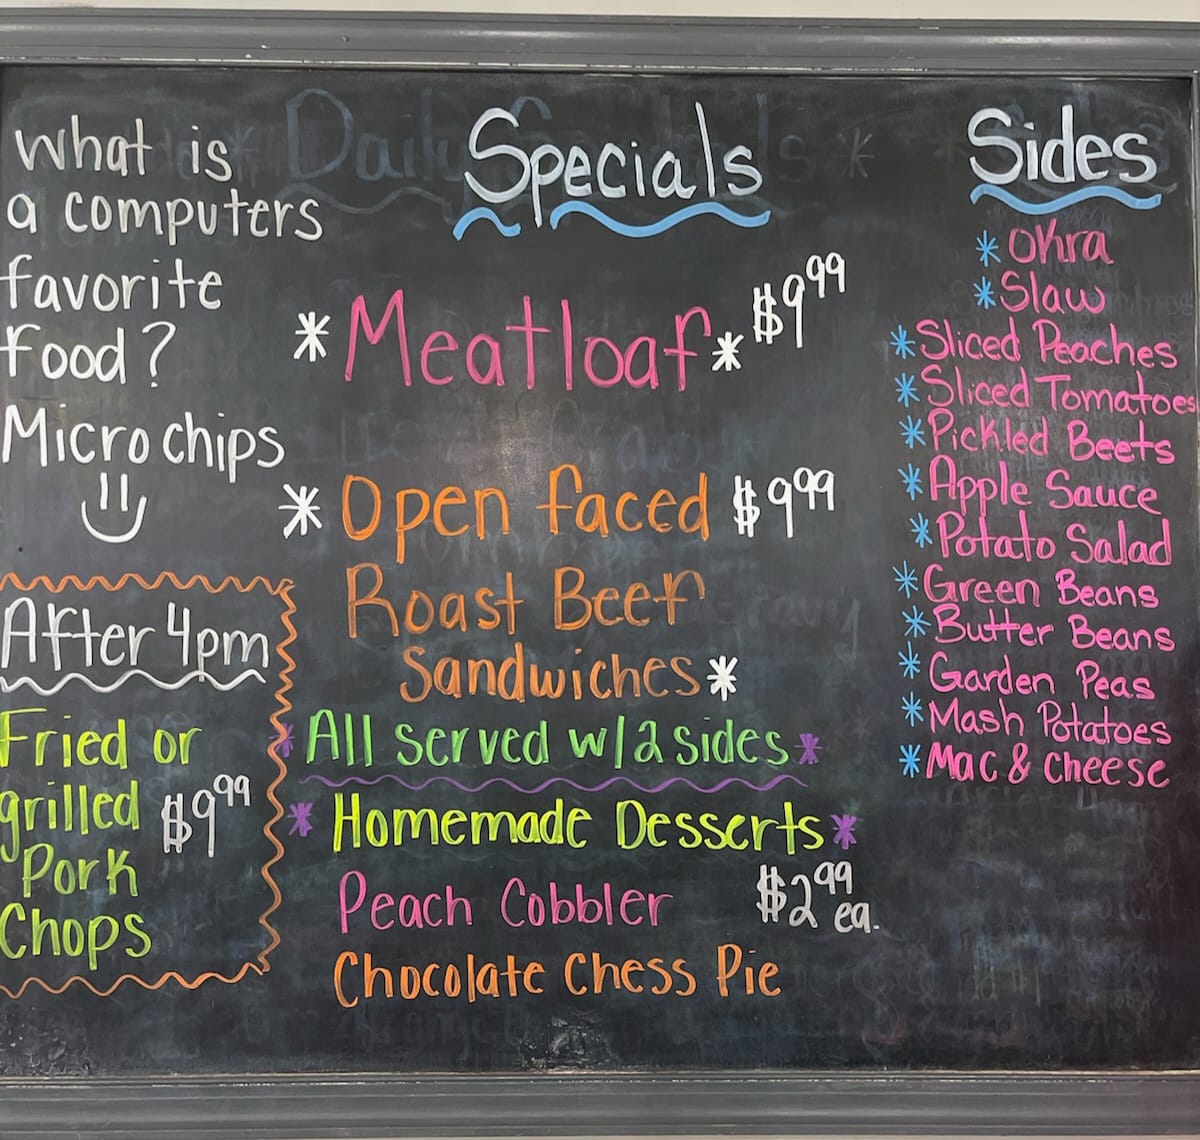 what is
a computers
favorite
food?
Microchips
After 4pm
Fried or
grilled $9.99
Pork
Chops
Specials
* Meatloaf * $9.99
* Open faced $9.99
Roast Beef
Sandwiches *
* All served w/2 sides *
* Homemade Desserts *
Peach Cobbler $2.99 ea.
Chocolate Chess Pie
Sides
* Okra
* Slaw
* Sliced Peaches
* Sliced Tomatoes
* Pickled Beets
* Apple Sauce
* Potato Salad
* Green Beans
* Butter Beans
* Garden Peas
* Mash Potatoes
* Mac & cheese